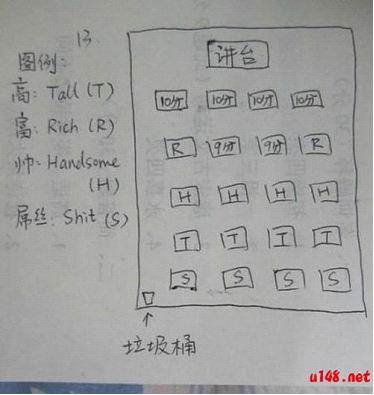 13
图例:
高: Tall (T)
富: Rich (R)
帅: Handsome
(H)
屌丝: Shit (S)
讲台
10分 10分 10分 10分
R 9分 9分 R
H H H H
T T T T
S S S S
垃圾桶
u148.net